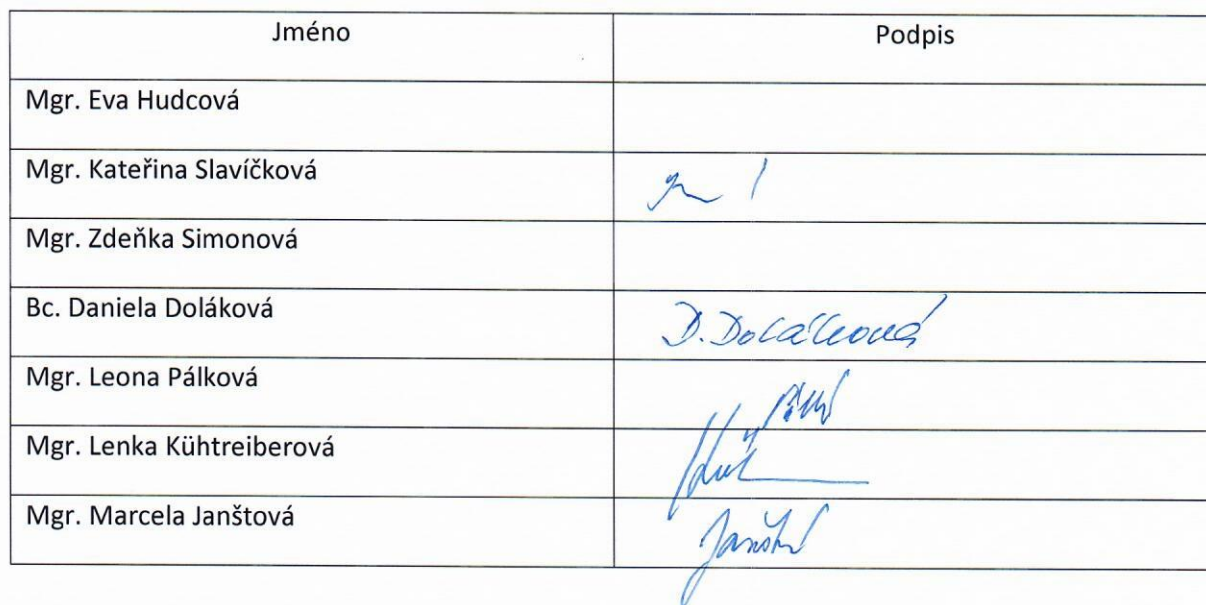 Jméno Podpis
Mgr. Eva Hudcová
Mgr. Kateřina Slavíčková
Mgr. Zdeňka Simonová
Bc. Daniela Doláková D. Doláková
Mgr. Leona Pálková
Mgr. Lenka Kühtreiberová
Mgr. Marcela Janštová